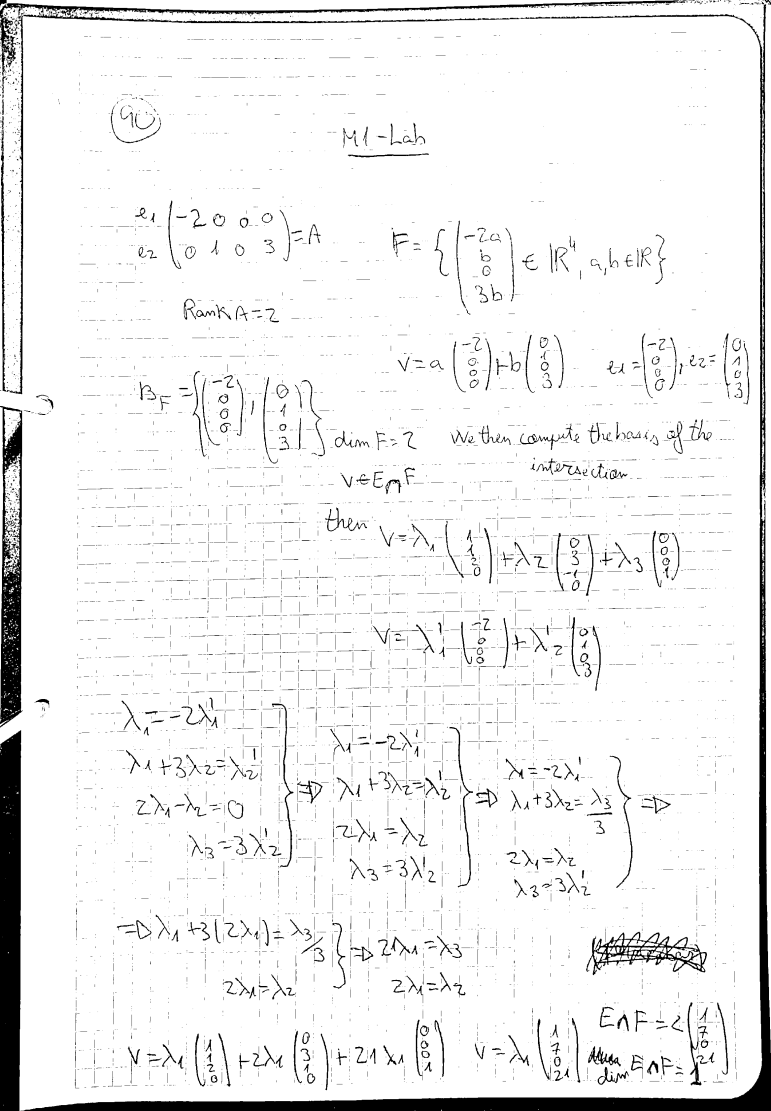 90
M1-Lab
e1 (-2 0 0 0)
e2 ( 0 1 0 3) = A
F = { (-2a, b, 0, 3b) ∈ ℝ⁴, a,b ∈ ℝ }
Rank A = 2
v = a (-2, 0, 0, 0) + b (0, 1, 0, 3) e1 = (-2, 0, 0, 0), e2 = (0, 1, 0, 3)
B_F = { (-2, 0, 0, 0), (0, 1, 0, 3) } dim F = 2
We then compute the basis of the
intersection
v ∈ E ∩ F
then
v = λ1 (1, 1, 2, 0) + λ2 (0, 3, -1, 0) + λ3 (0, 0, 0, 1)
v = λ'1 (-2, 0, 0, 0) + λ'2 (0, 1, 0, 3)
λ1 = -2λ'1
λ1 + 3λ2 = λ'2
2λ1 - λ2 = 0
λ3 = 3λ'2
} ⇒
λ1 = -2λ'1
λ1 + 3λ2 = λ'2
2λ1 = λ2
λ3 = 3λ'2
} ⇒
λ1 = -2λ'1
λ1 + 3λ2 = λ3/3
2λ1 = λ2
λ3 = 3λ'2
} ⇒
⇒ λ1 + 3(2λ1) = λ3/3
2λ1 = λ2
} ⇒ 21λ1 = λ3
2λ1 = λ2
v = λ1 (1, 1, 2, 0) + 2λ1 (0, 3, 1, 0) + 21λ1 (0, 0, 0, 1) v = λ1 (1, 7, 0, 21)
E∩F = < (1, 7, 0, 21)
dim E∩F = 1